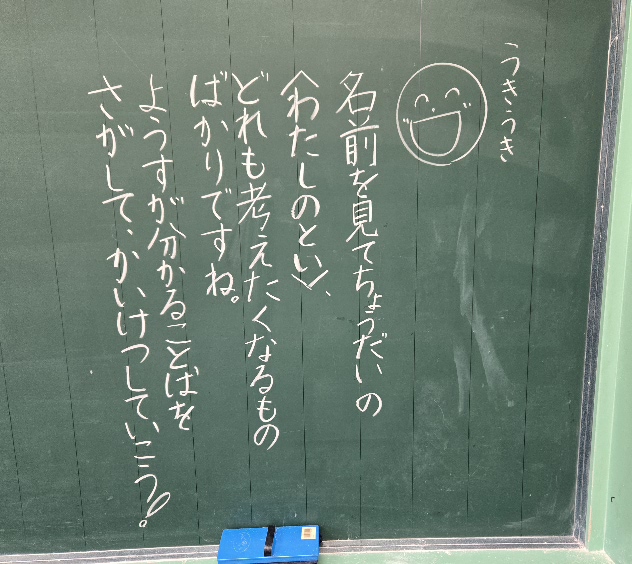 うきうき
名前を見てちょうだいの
〈わたしのとい〉、
どれも考えたくなるもの
ばかりですね。
ようすが分かることばを
さがして、かいけつしていこう!